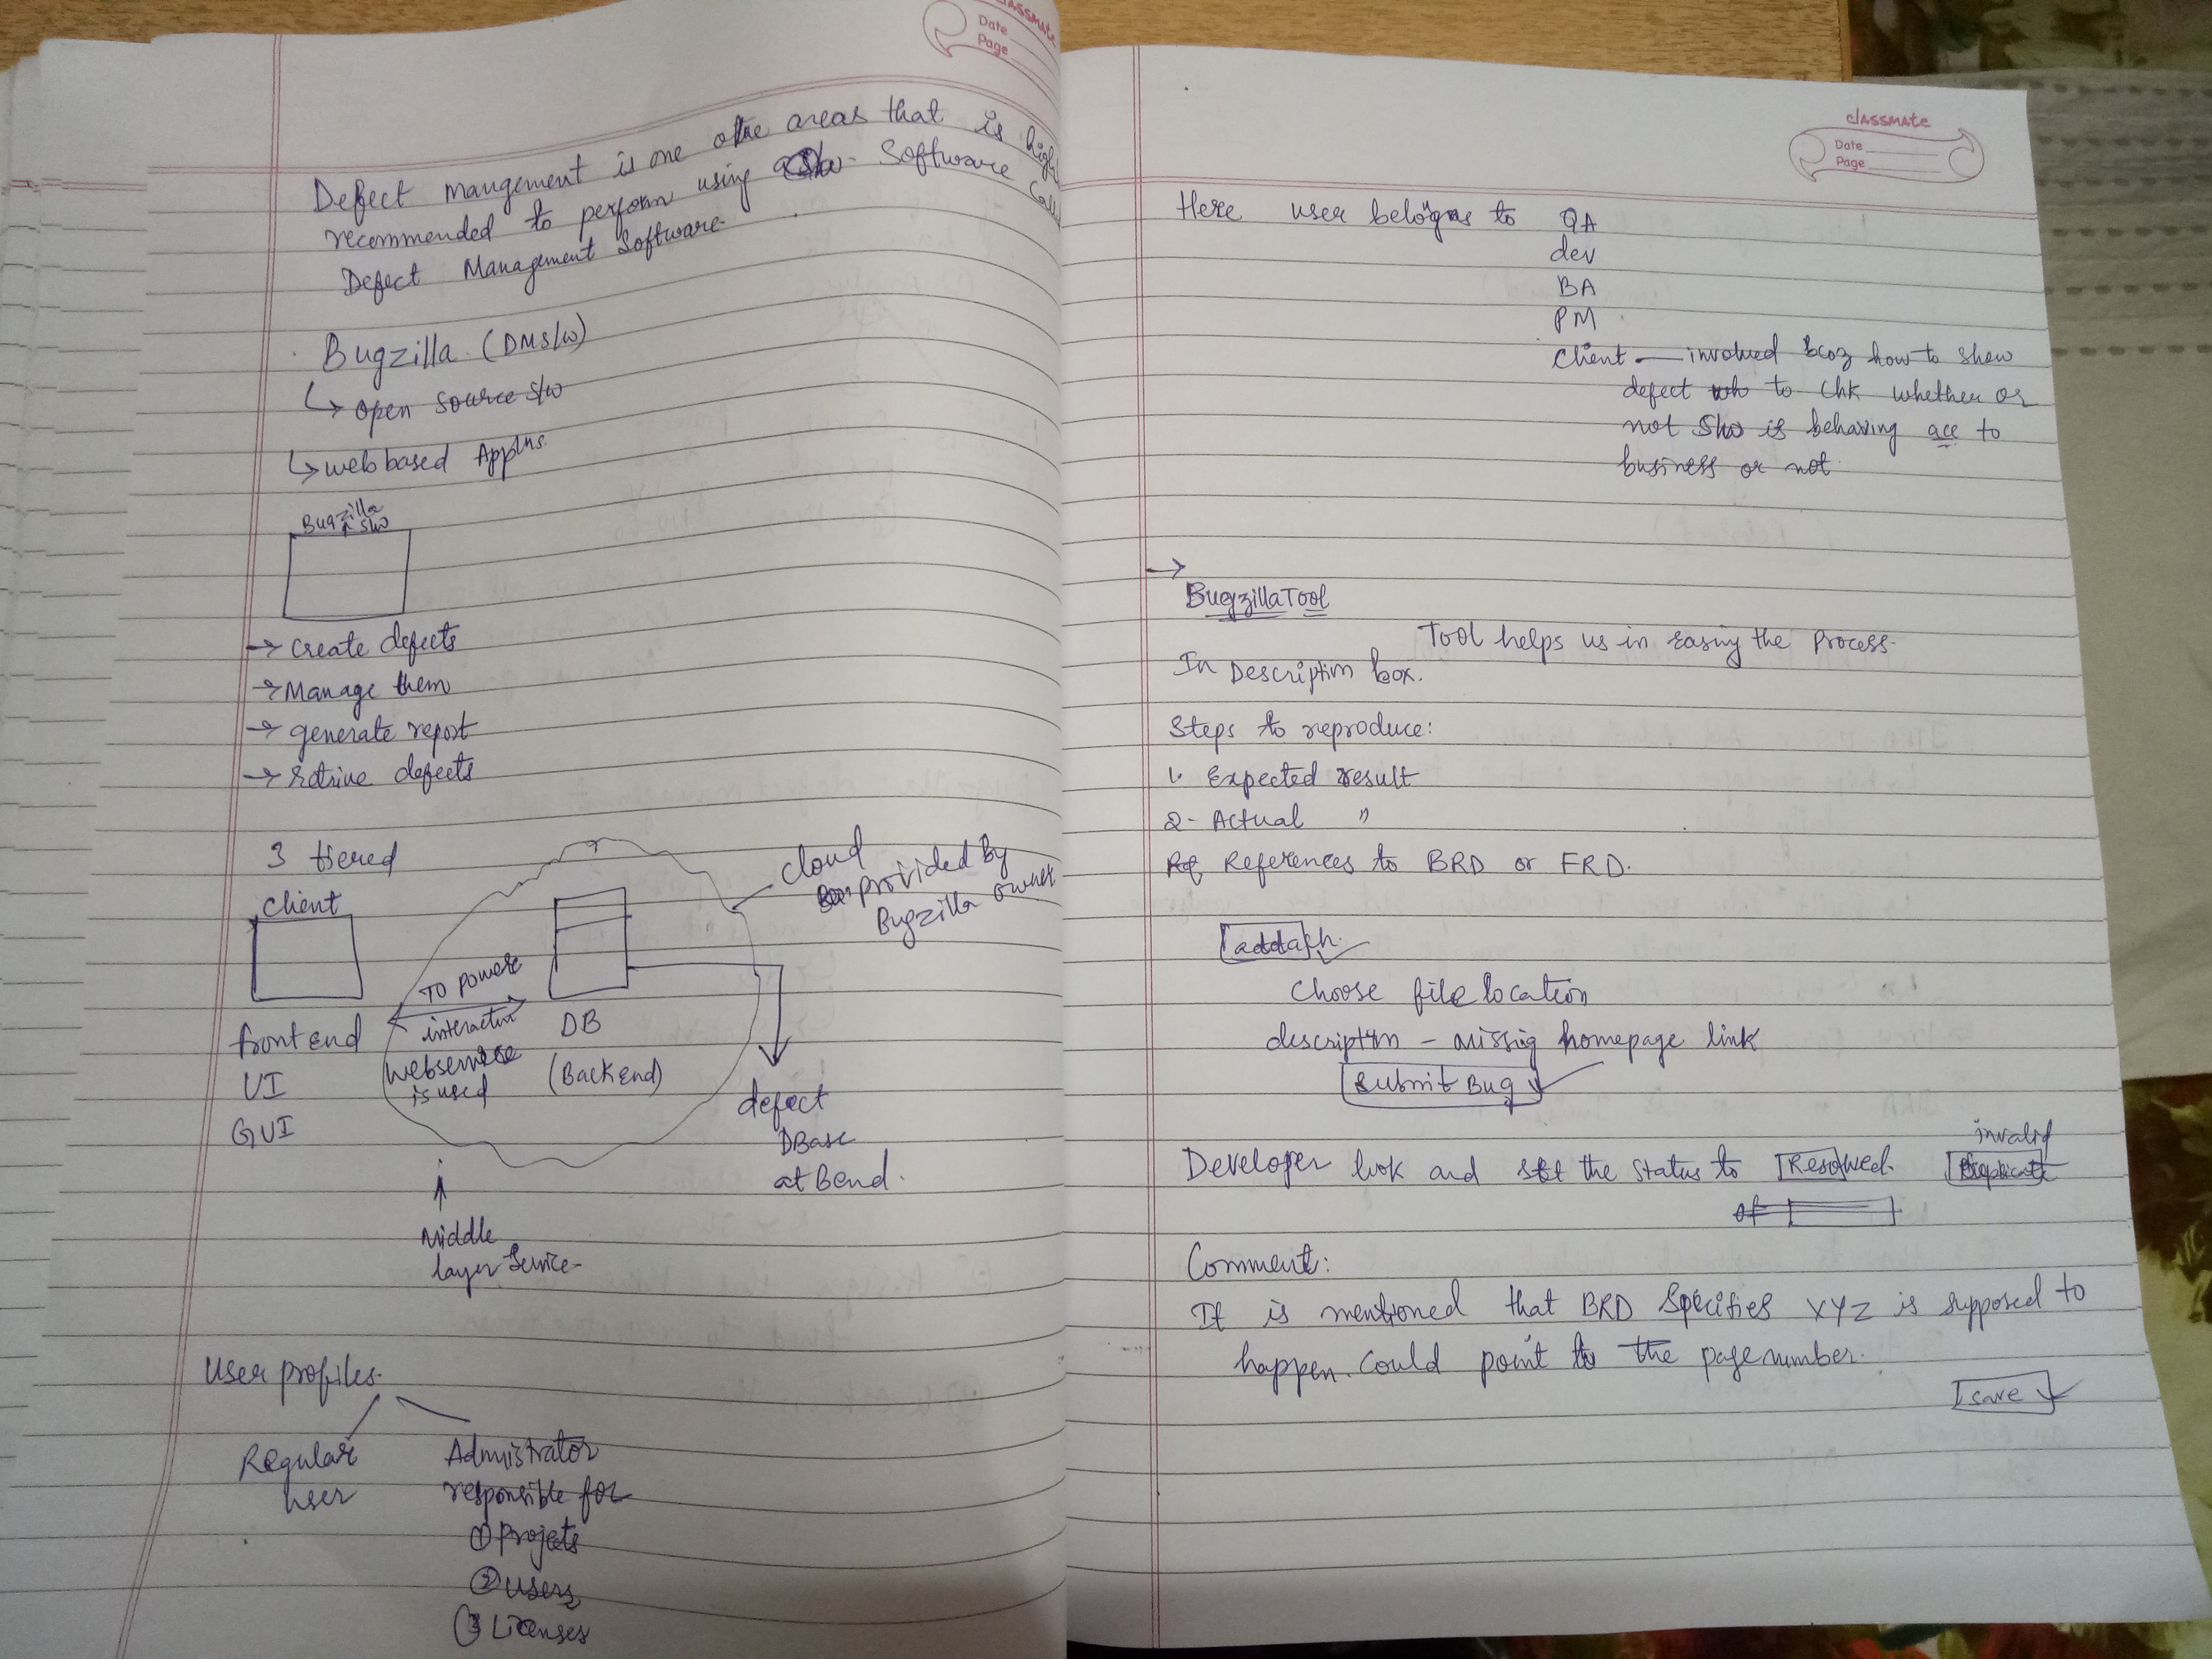 classmate
Date
Page
Defect mangement is one of the areas that is high
recommended to perform using a S/w. Software Call
Defect Management Software.
Bugzilla. (DMS/w)
↳ open source s/w
↳ web based Applns.
Bugzilla s/w
→ create defects
→ Manage them
→ generate report
→ retrive defects
3 tiered
client
cloud
provided by
Bugzilla owner
To power
interaction
webservice
is used
front end
UI
GUI
DB
(Back end)
defect
DBase
at Bend.
Middle
layer Service-
User profiles.
Regular
user
Admistrator
responsible for
① Projets
② Users
③ Licenses
classmate
Date
Page
Here user belogns to QA
dev
BA
PM
Client — involved bcoz how to show
defect to chk whether or
not S/w is behaving acc to
business or not.
→
Bugzilla Tool
Tool helps us in easing the process.
In Description box.
Steps to reproduce:
1. Expected result
2- Actual "
References to BRD or FRD.
Choose file location
description - missing homepage link
Submit Bug
Developer look and set the status to Resolved.
invalid
Duplicate
or
Comment:
It is mentioned that BRD Specifies XYZ is supposed to
happen. Could point to the page number.
save